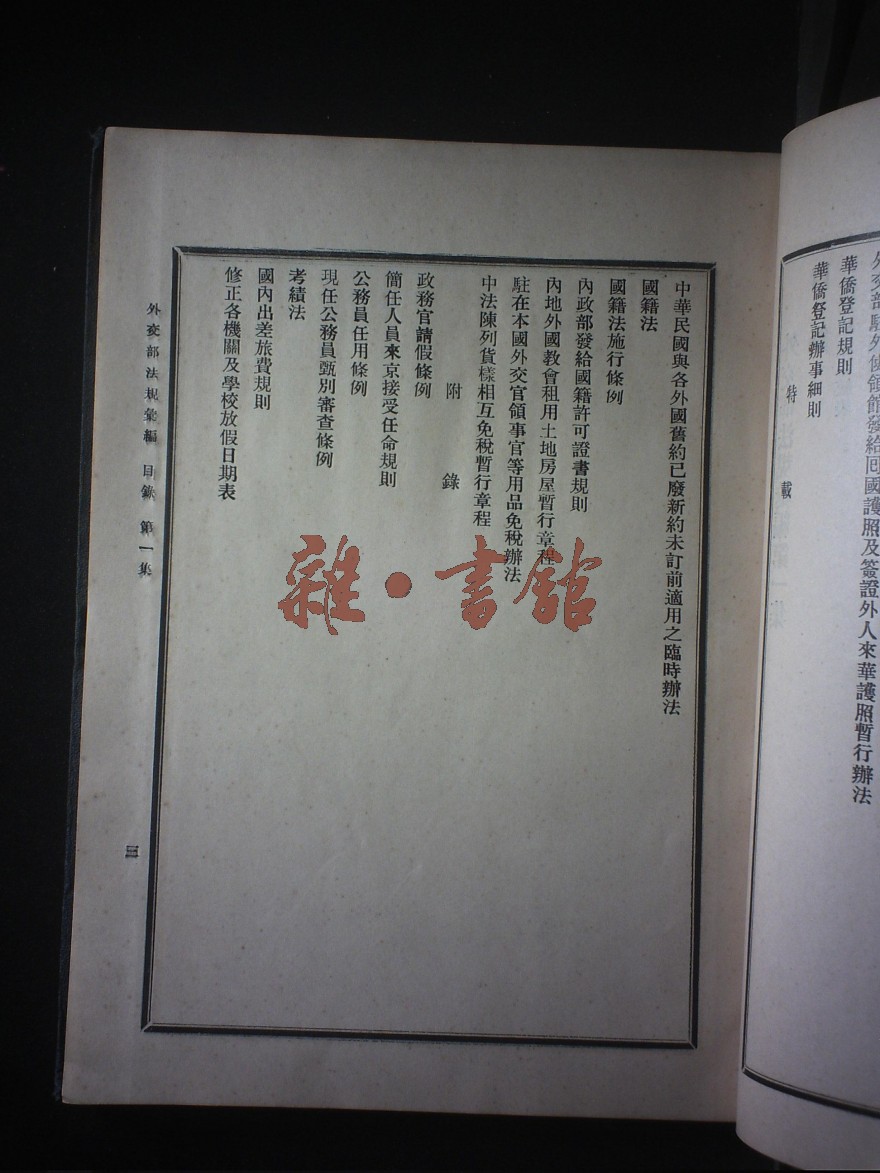 外交部駐外使領館發給回國護照及簽證外人來華護照暫行辦法
華僑登記規則
華僑登記辦事細則
特載
中華民國與各外國舊約已廢新約未訂前適用之臨時辦法
國籍法
國籍法施行條例
內政部發給國籍許可證書規則
內地外國教會租用土地房屋暫行章程
駐在本國外交官領事官等用品免稅辦法
中法陳列貨樣相互免稅暫行章程
附錄
政務官請假條例
簡任人員來京接受任命規則
公務員任用條例
現任公務員甄別審查條例
考績法
國內出差旅費規則
修正各機關及學校放假日期表
外交部法規彙編 目錄 第一集
三
雜·書館